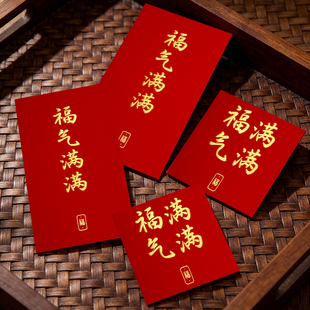 福气满满
福
福气满满
福
福气
满满
福
福气
满满
福